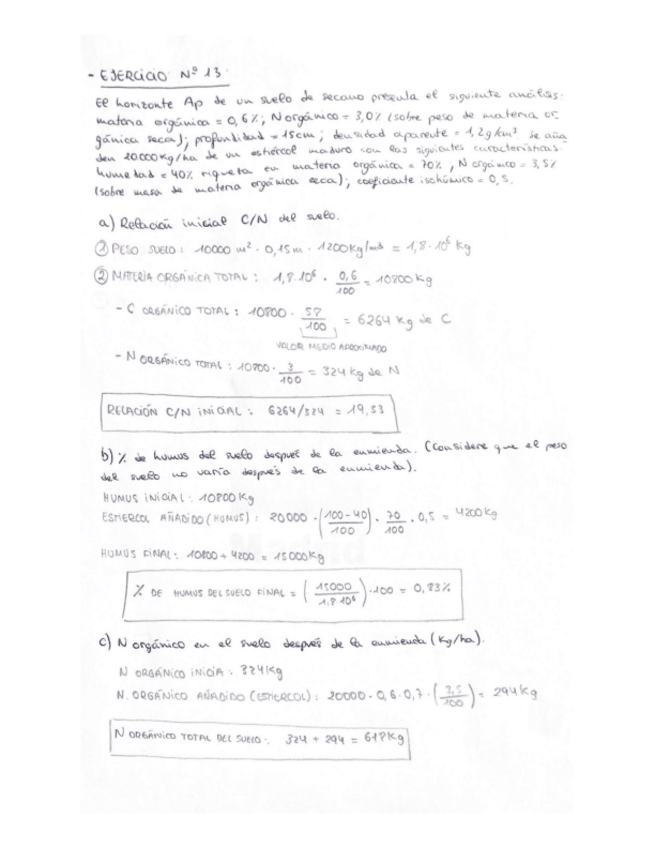 - EJERCICIO Nº 13.
El horizonte Ap de un suelo de secano presenta el siguiente análisis:
materia orgánica = 0,6%; N orgánico = 3,0% (sobre peso de materia or-
gánica seca); profundidad = 15cm; densidad aparente = 1,2g/cm³ Se aña-
den 20000Kg/ha de un estiércol maduro con las siguientes características:
humedad = 40% riqueza en materia orgánica = 70%, N orgánico = 3,5%
(sobre masa de materia orgánica seca); coeficiente isohúmico = 0,5.
a) Relación inicial C/N del suelo.
① PESO SUELO: 10000 m² · 0,15m · 1200Kg/m³ = 1,8·10⁶ Kg
② MATERIA ORGÁNICA TOTAL: 1,8·10⁶ · 0,6/100 = 10800Kg
- C ORGÁNICO TOTAL: 10800 · 58/100 = 6264 Kg de C
VALOR MEDIO APROXIMADO
- N ORGÁNICO TOTAL: 10800 · 3/100 = 324Kg de N
RELACIÓN C/N INICIAL: 6264/324 = 19,33
b) % de humus del suelo después de la enmienda. (Considere que el peso
del suelo no varía después de la enmienda).
HUMUS INICIAL: 10800Kg
ESTIERCOL AÑADIDO (HUMUS): 20000 · (100-40/100) · 70/100 · 0,5 = 4200Kg
HUMUS FINAL: 10800 + 4200 = 15000Kg
% DE HUMUS DEL SUELO FINAL = (15000/1,8·10⁶) · 100 = 0,83%
c) N orgánico en el suelo después de la enmienda (Kg/ha).
N ORGÁNICO INICIA: 324Kg
N. ORGÁNICO AÑADIDO (ESTIERCOL): 20000 · 0,6 · 0,7 · (3,5/100) = 294Kg
N ORGÁNICO TOTAL DEL SUELO: 324 + 294 = 618Kg